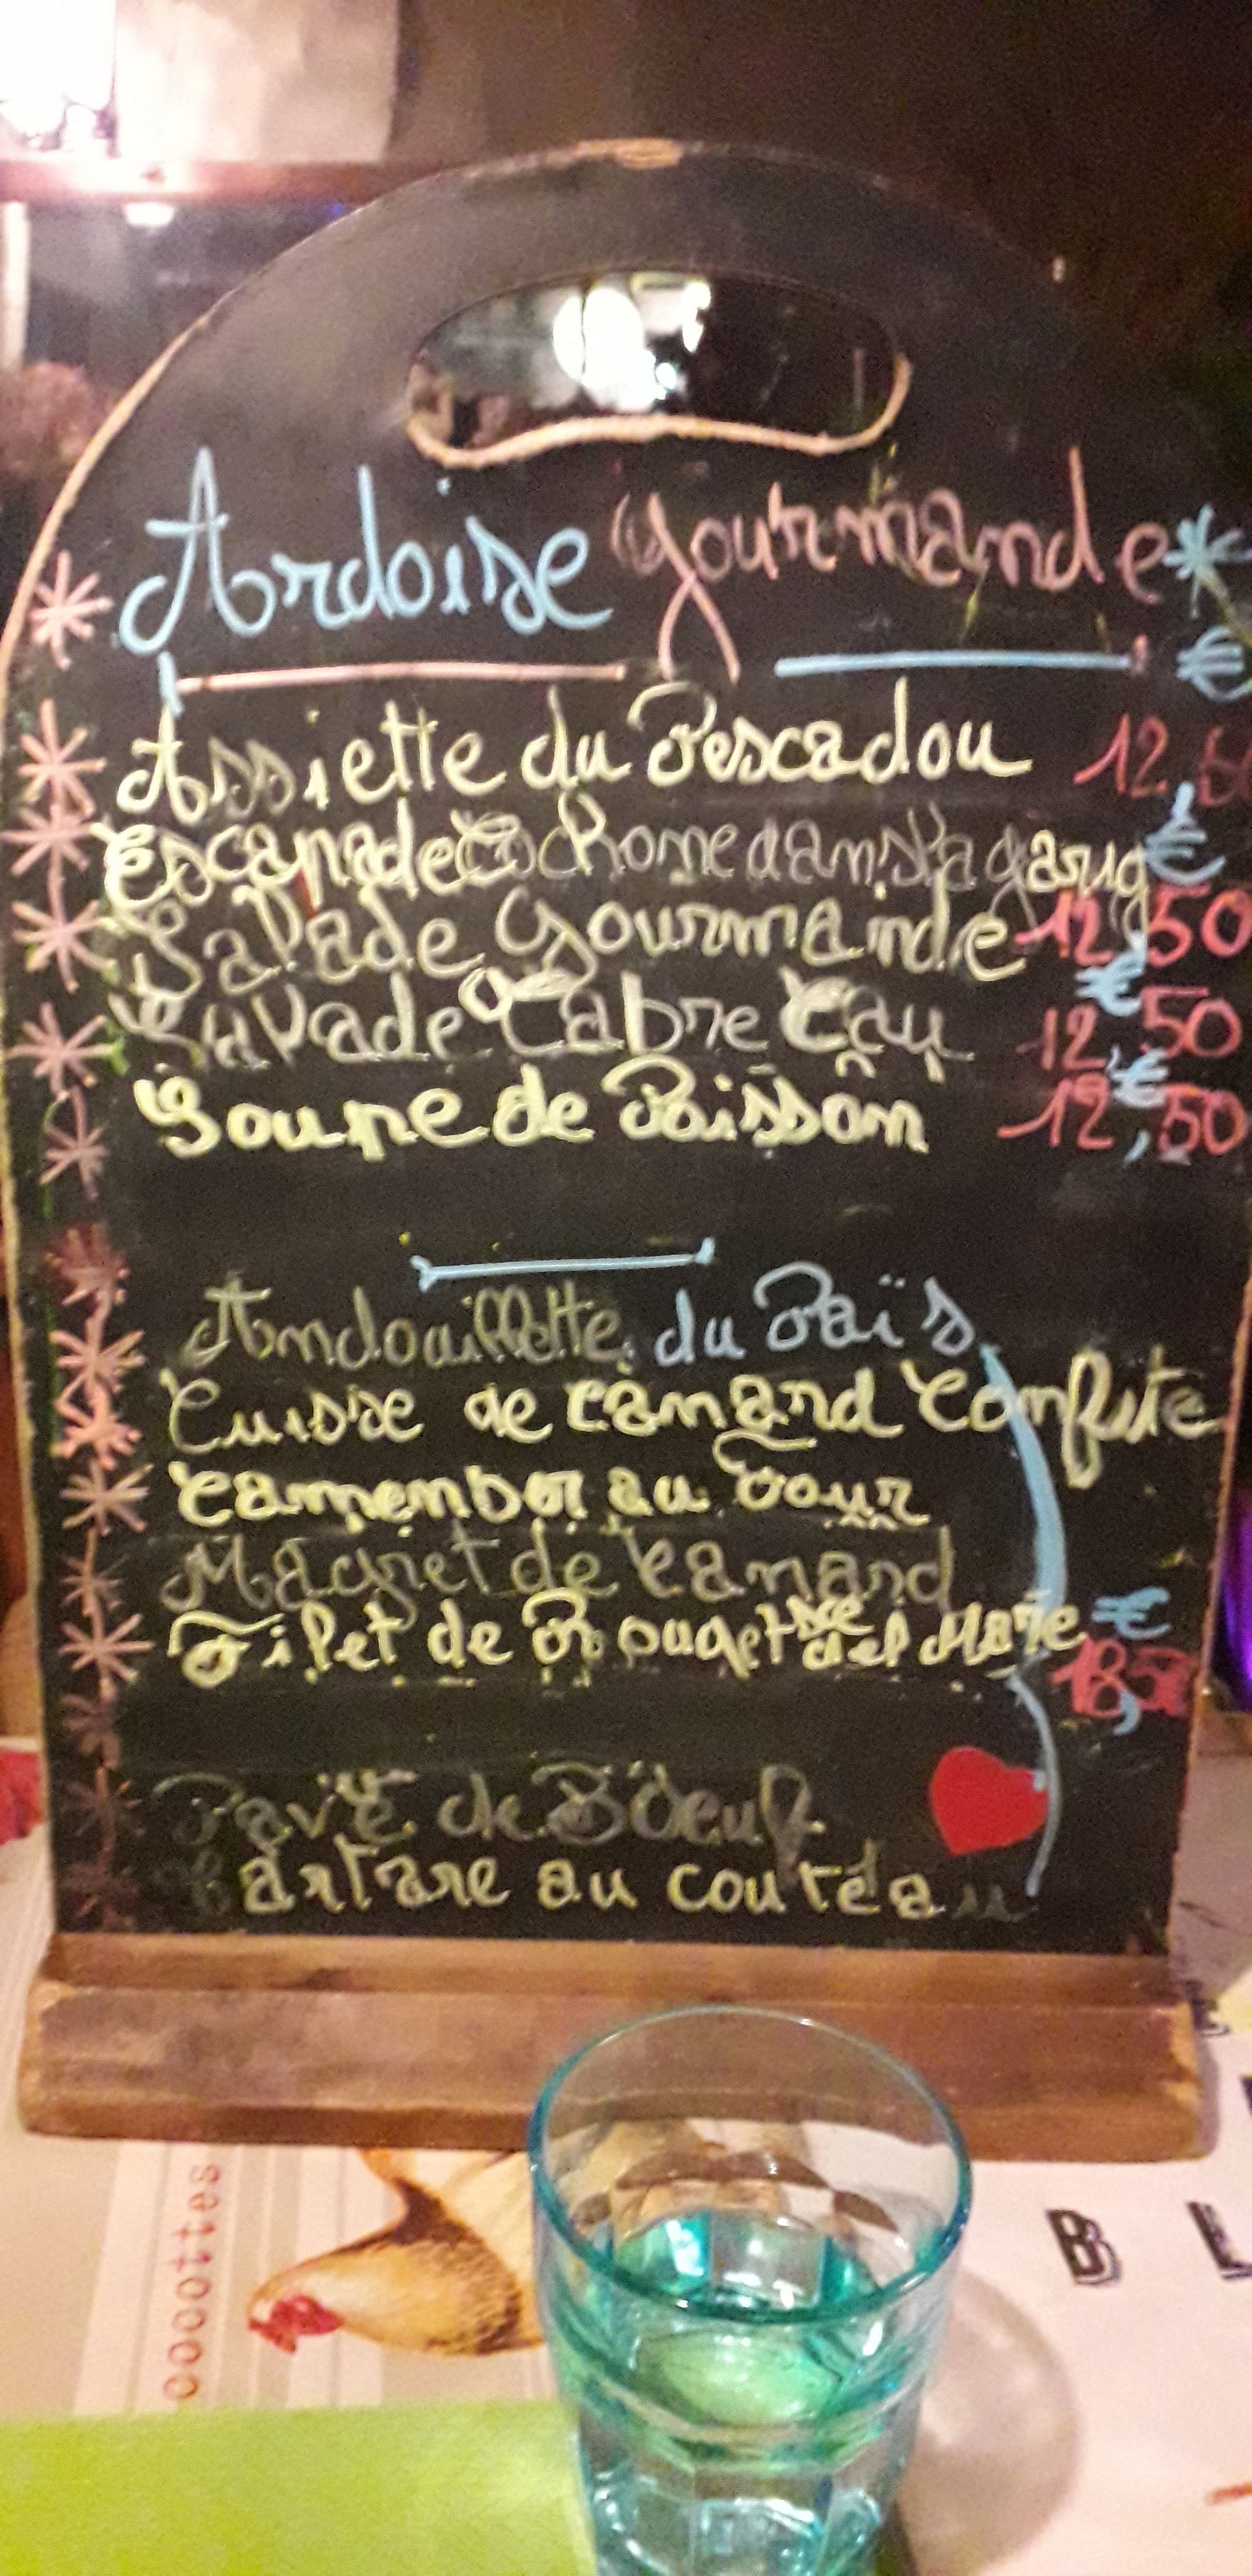 Ardoise gourmande
€
Assiette du Pescadou 12,
Escapade Cochone dans la garig €
Salade Gourmande 12,50
€
Salade Cabre Cau 12,50
€
Soupe de Poisson 12,50
Andouillette du Païs
Cuisse de Canard Confite
Camenbor au Four
Magret de Canard
Filet de Rouget del Mare €
18,50
Pavé de Boeuf
Tartare au coutéau
cooottes
B L